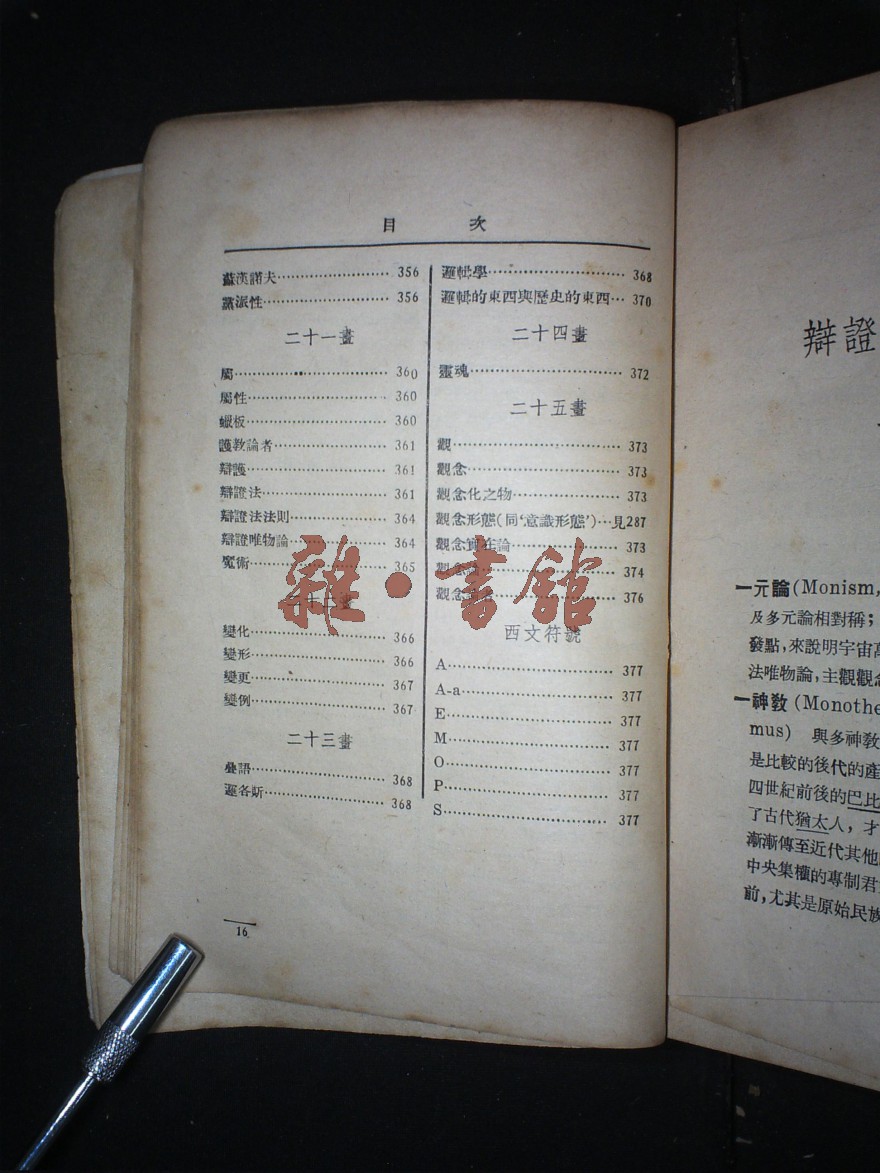 目 次
蘇漢諾夫 356
黨派性 356
二十一畫
屬 360
屬性 360
蠟板 360
護敎論者 361
辯護 361
辯證法 361
辯證法法則 364
辯證唯物論 364
魔術 365
二十二畫
變化 366
變形 366
變更 367
變例 367
二十三畫
疊語 368
邏各斯 368
邏輯學 368
邏輯的東西與歷史的東西 370
二十四畫
靈魂 372
二十五畫
觀 373
觀念 373
觀念化之物 373
觀念形態(同‘意識形態’) 見287
觀念實在論 373
觀念論 374
觀念 376
西文符號
A 377
A-a 377
E 377
M 377
O 377
P 377
S 377
16
雜·書館
辯證
一元論(Monism,
及多元論相對稱；
發點，來說明宇宙萬
法唯物論，主觀觀念
一神敎(Monothe
mus) 與多神敎
是比較的後代的產
四世紀前後的巴比
了古代猶太人，才
漸漸傳至近代其他
中央集權的專制君
前，尤其是原始民族